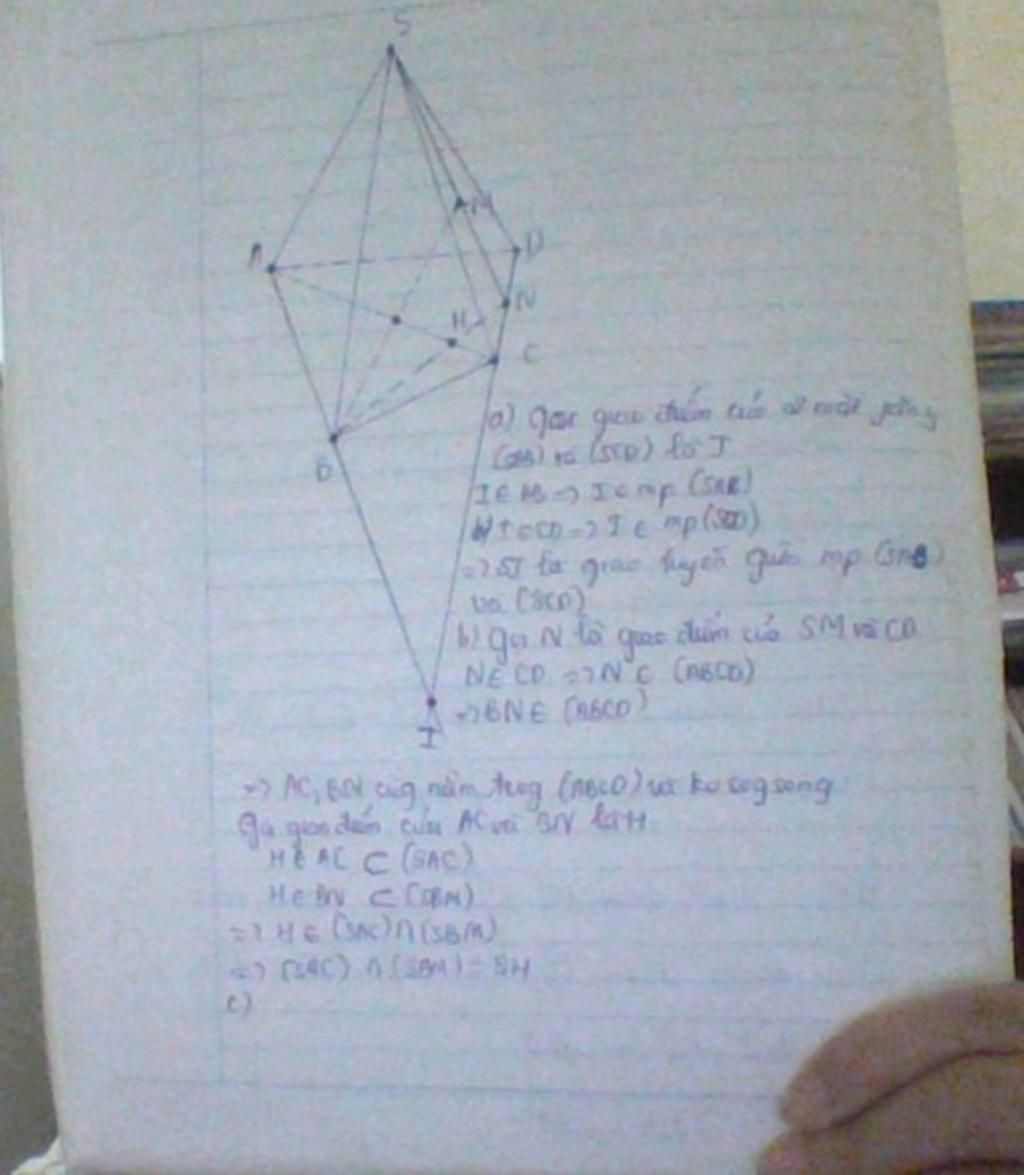 S
M
A
D
N
H
C
B
I
a) Gọi giao điểm của 2 mặt phẳng
(SAB) và (SCD) là I
I ∈ AB => I ∈ mp (SAB)
I ∈ CD => I ∈ mp (SCD)
=> SI là giao tuyến giữa mp (SAB)
và (SCD)
b) Gọi N là giao điểm của SM và CD
N ∈ CD => N ∈ (ABCD)
=> BN ∈ (ABCD)
=> AC, BN cùg nằm trog (ABCD) và ko sog song
Gọi giao điểm của AC và BN là H
H ∈ AC ⊂ (SAC)
H ∈ BN ⊂ (SBM)
=> H ∈ (SAC) ∩ (SBM)
=> (SAC) ∩ (SBM) = SH
c)